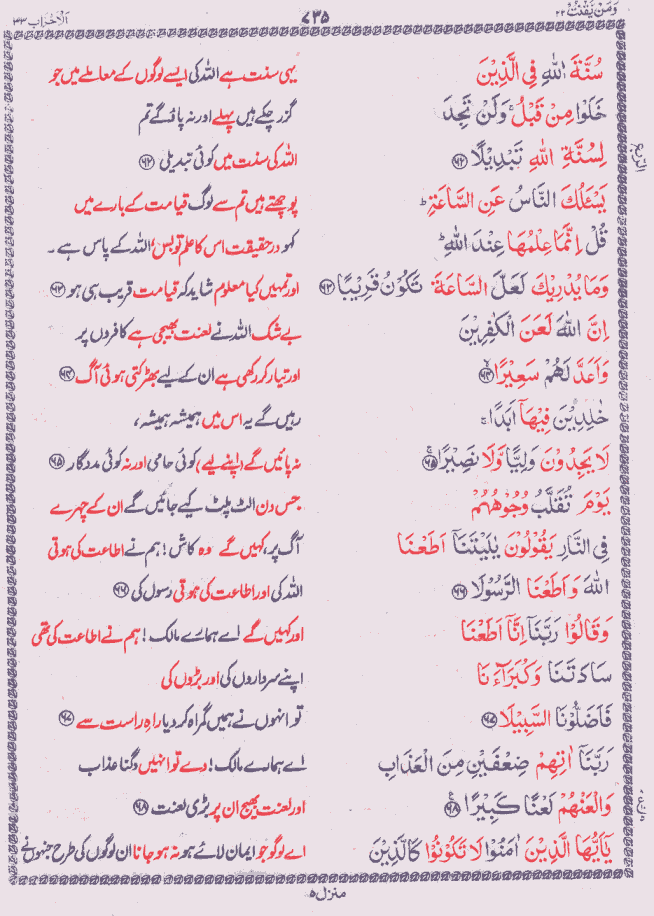 وَمَنْ يَّقْنُتْ ٢٢ ٧٣٥ اَلْاَحْزَاب ٣٣
سُنَّةَ اللّٰهِ فِي الَّذِيْنَ یہی سنت ہے اللہ کی ایسے لوگوں کے معاملے میں جو
خَلَوْا مِنْ قَبْلُ ۚ وَلَنْ تَجِدَ گزر چکے ہیں پہلے اور نہ پاؤ گے تم
لِسُنَّةِ اللّٰهِ تَبْدِيْلًا ﴿٦٢﴾ اللہ کی سنت میں کوئی تبدیلی ﴿٦٢﴾
يَسْـَٔلُكَ النَّاسُ عَنِ السَّاعَةِ ؕ پوچھتے ہیں تم سے لوگ قیامت کے بارے میں
قُلْ اِنَّمَا عِلْمُهَا عِنْدَ اللّٰهِ ؕ کہو درحقیقت اس کا علم تو بس اللہ کے پاس ہے ۔
وَمَا يُدْرِيْكَ لَعَلَّ السَّاعَةَ تَكُوْنُ قَرِيْبًا ﴿٦٣﴾ اور تمہیں کیا معلوم شاید کہ قیامت قریب ہی ہو ﴿٦٣﴾
اِنَّ اللّٰهَ لَعَنَ الْكٰفِرِيْنَ بے شک اللہ نے لعنت بھیجی ہے کافروں پر
وَاَعَدَّ لَهُمْ سَعِيْرًا ﴿٦٤﴾ اور تیار کر رکھی ہے ان کے لیے بھڑکتی ہوئی آگ ﴿٦٤﴾
خٰلِدِيْنَ فِيْهَاۤ اَبَدًا ۚ رہیں گے یہ اس میں ہمیشہ ہمیشہ،
لَا يَجِدُوْنَ وَلِيًّا وَّلَا نَصِيْرًا ﴿٦٥﴾ نہ پائیں گے (اپنے لیے) کوئی حامی اور نہ کوئی مددگار ﴿٦٥﴾
يَوْمَ تُقَلَّبُ وُجُوْهُهُمْ جس دن الٹ پلٹ کیے جائیں گے ان کے چہرے
فِي النَّارِ يَقُوْلُوْنَ يٰلَيْتَنَاۤ اَطَعْنَا آگ پر، کہیں گے وہ کاش! ہم نے اطاعت کی ہوتی
اللّٰهَ وَاَطَعْنَا الرَّسُوْلَا ﴿٦٦﴾ اللہ کی اور اطاعت کی ہوتی رسول کی ﴿٦٦﴾
وَقَالُوْا رَبَّنَاۤ اِنَّاۤ اَطَعْنَا اور کہیں گے اے ہمارے مالک! ہم نے اطاعت کی تھی
سَادَتَنَا وَكُبَرَآءَنَا اپنے سرداروں کی اور بڑوں کی
فَاَضَلُّوْنَا السَّبِيْلَا ﴿٦٧﴾ تو انہوں نے ہمیں گمراہ کر دیا راہِ راست سے ﴿٦٧﴾
رَبَّنَاۤ اٰتِهِمْ ضِعْفَيْنِ مِنَ الْعَذَابِ اے ہمارے مالک! دے تو انہیں دگنا عذاب
وَالْعَنْهُمْ لَعْنًا كَبِيْرًا ﴿٦٨﴾ اور لعنت بھیج ان پر بڑی لعنت ﴿٦٨﴾
يٰۤاَيُّهَا الَّذِيْنَ اٰمَنُوْا لَا تَكُوْنُوْا كَالَّذِيْنَ اے لوگو جو ایمان لائے ہو نہ ہو جانا ان لوگوں کی طرح جنہوں نے
منزل ٥
الربع